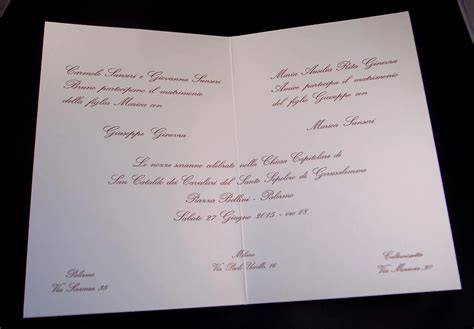 Carmelo Sunseri e Giovanna Sunseri
Bruno partecipano il matrimonio
della figlia Marica con
Giuseppe Ginevra
Maria Ausilia Rita Ginevra
Amico partecipa il matrimonio
del figlio Giuseppe con
Marica Sunseri
Le nozze saranno celebrate nella Chiesa Capitolare di
San Cataldo dei Cavalieri del Santo Sepolcro di Gerusalemme
Piazza Bellini - Palermo
Sabato 27 Giugno 2015 - ore 18
Palermo
Via 35
Milano
Via 16
Caltanissetta
Via 30